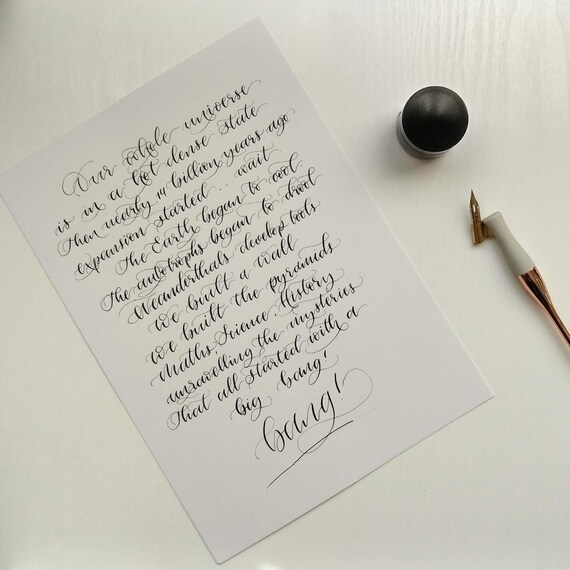 Our whole universe
is in a hot dense state
Then nearly 14 billion years ago
expansion started .. wait
The Earth began to cool.
The autotrophs began to drool
Neanderthals develop tools
We built a wall
we built the pyramids
Maths, Science, History
unravelling the mysteries
That all started with a
big bang!
bang!